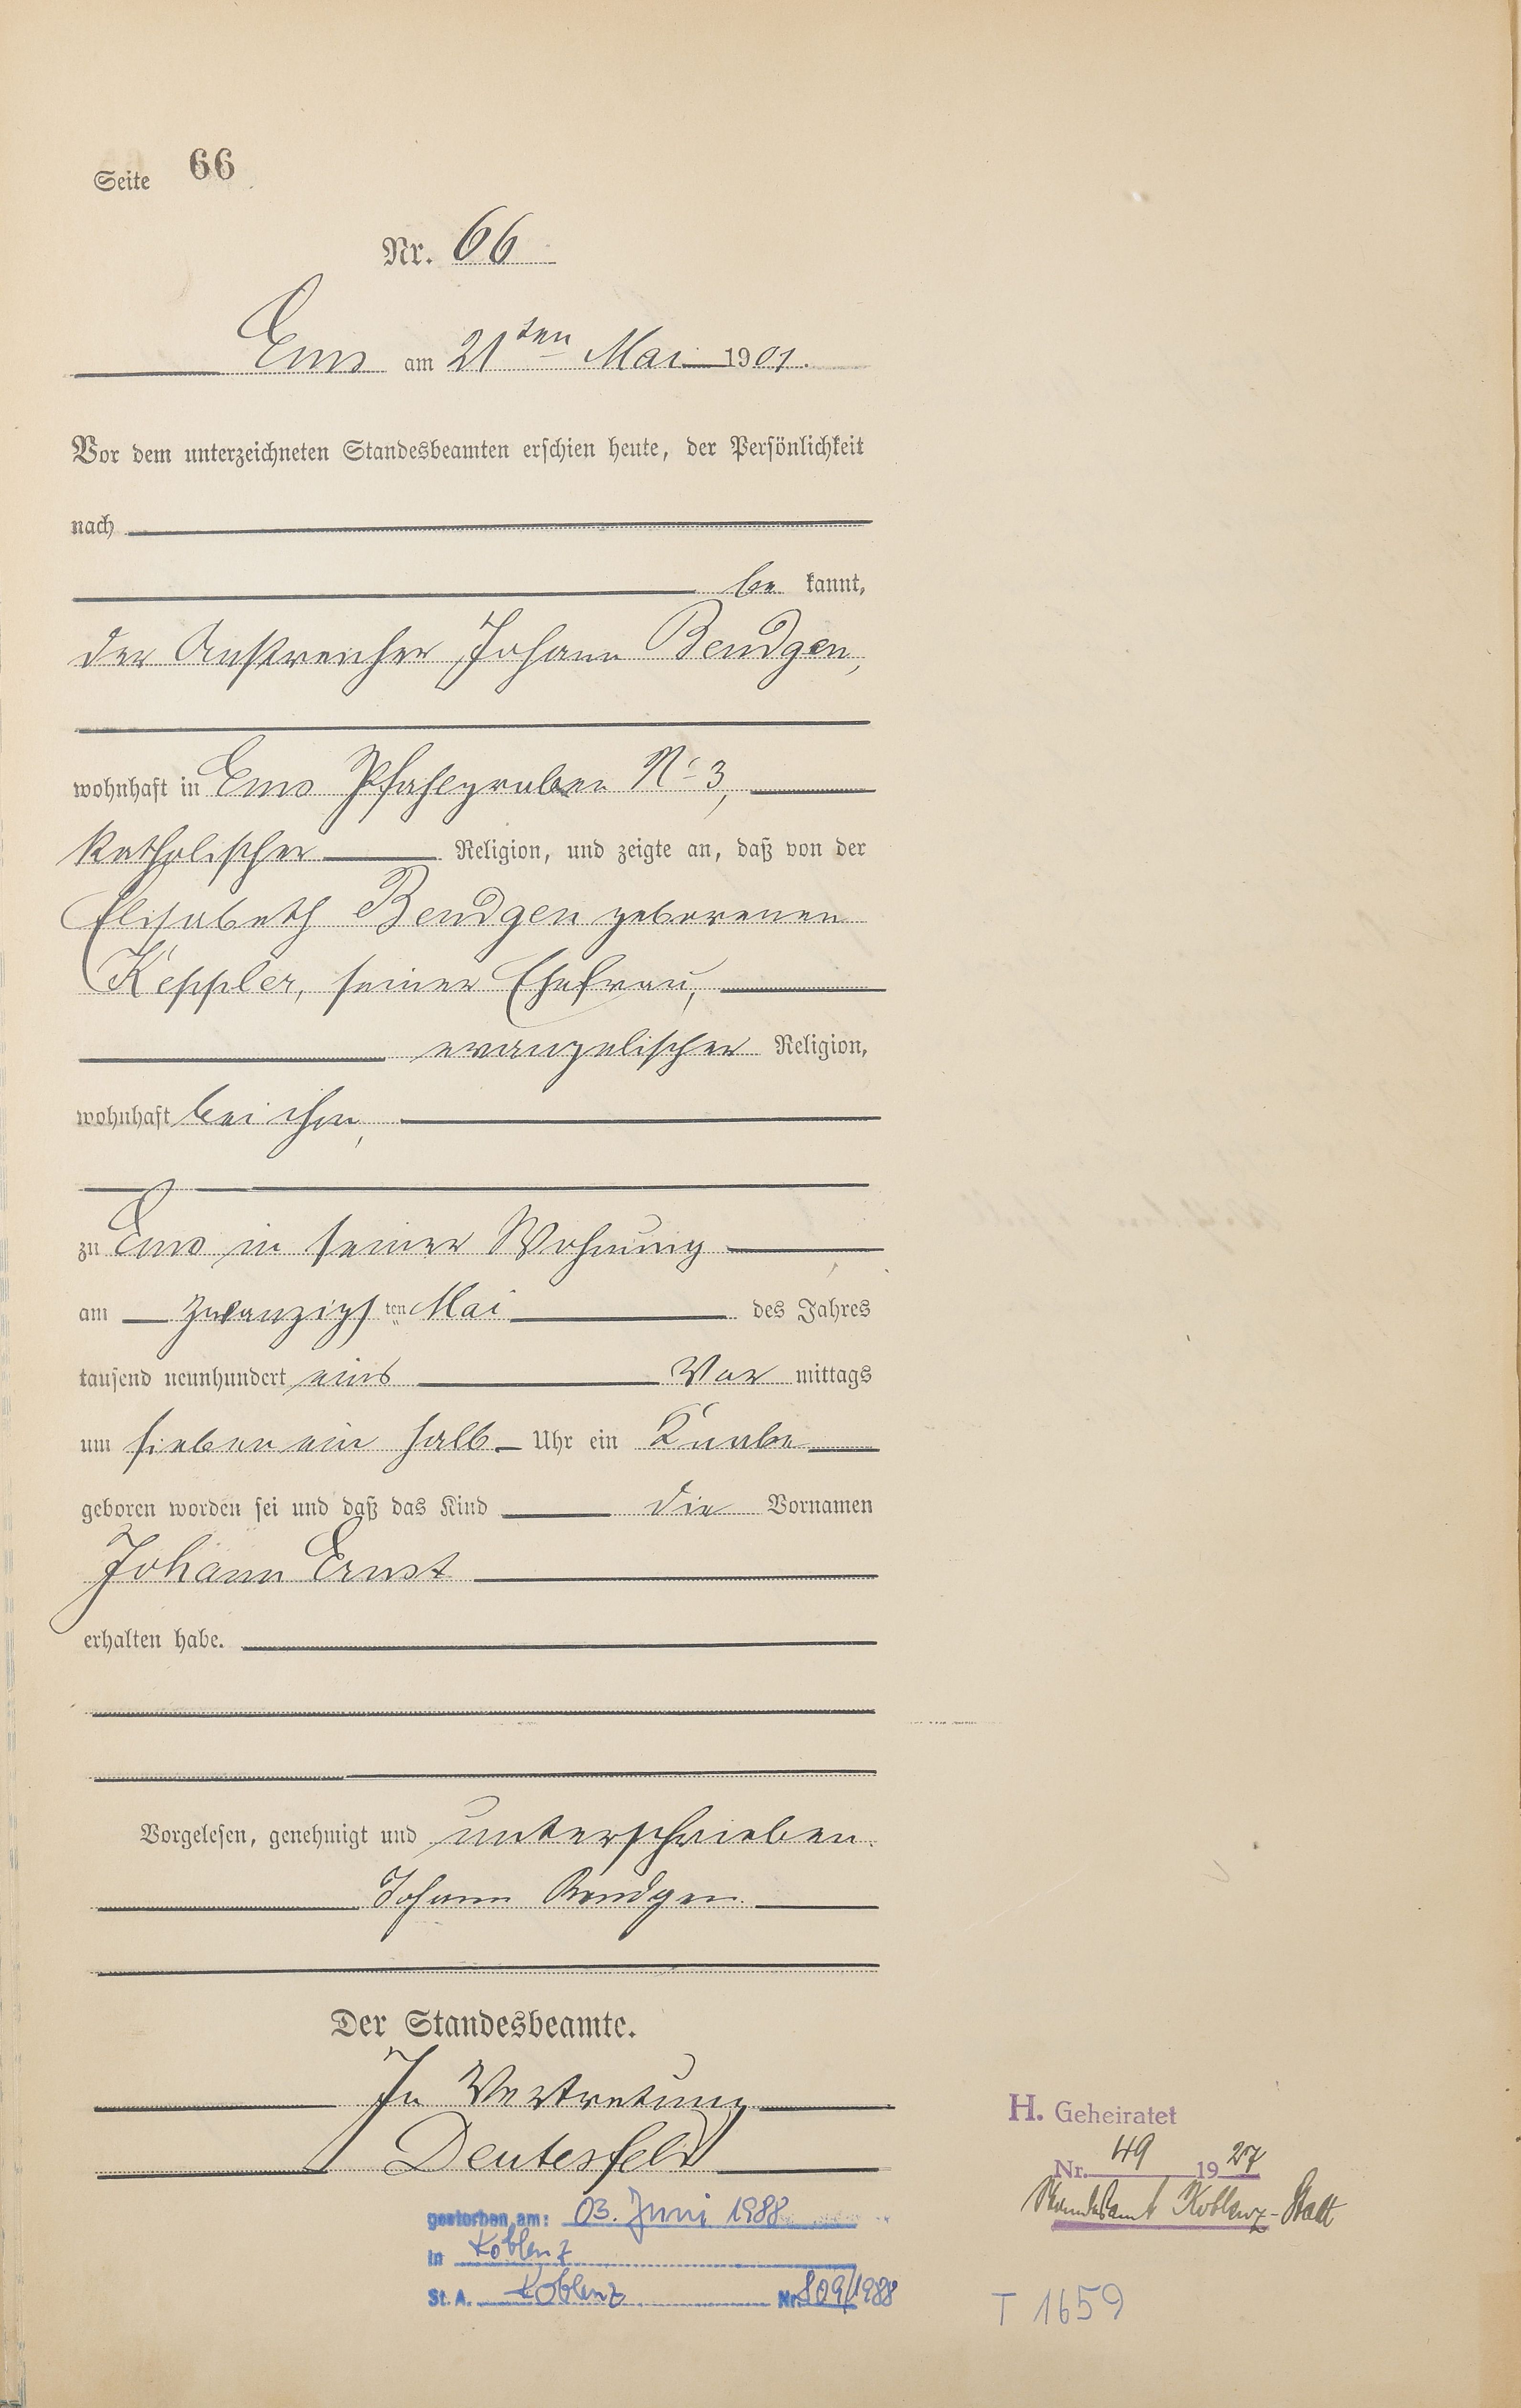 Seite 66
Nr. 66
Ems am 21ten Mai 1901.
Vor dem unterzeichneten Standesbeamten erschien heute, der Persönlichkeit
nach
be kannt,
der Anstreicher Johann Bendgen,
wohnhaft in Ems Pfahlgraben No 3,
katholischer Religion, und zeigte an, daß von der
Elisabeth Bendgen geborenen
Keppler, seiner Ehefrau,
evangelischer Religion,
wohnhaft bei ihm,
zu Ems in seiner Wohnung
am zwanzigsten Mai des Jahres
tausend neunhundert eins Vor mittags
um sieben ein halb Uhr ein Knabe
geboren worden sei und daß das Kind die Vornamen
Johann Ernst
erhalten habe.
Vorgelesen, genehmigt und unterschrieben.
Johann Bendgen.
Der Standesbeamte.
In Vertretung
Deutesfeld
gestorben am: 03. Juni 1988
in Koblenz
St. A. Koblenz Nr. 809/1988
H. Geheiratet
Nr. 49 1927
Standesamt Koblenz-Stadt
T 1659